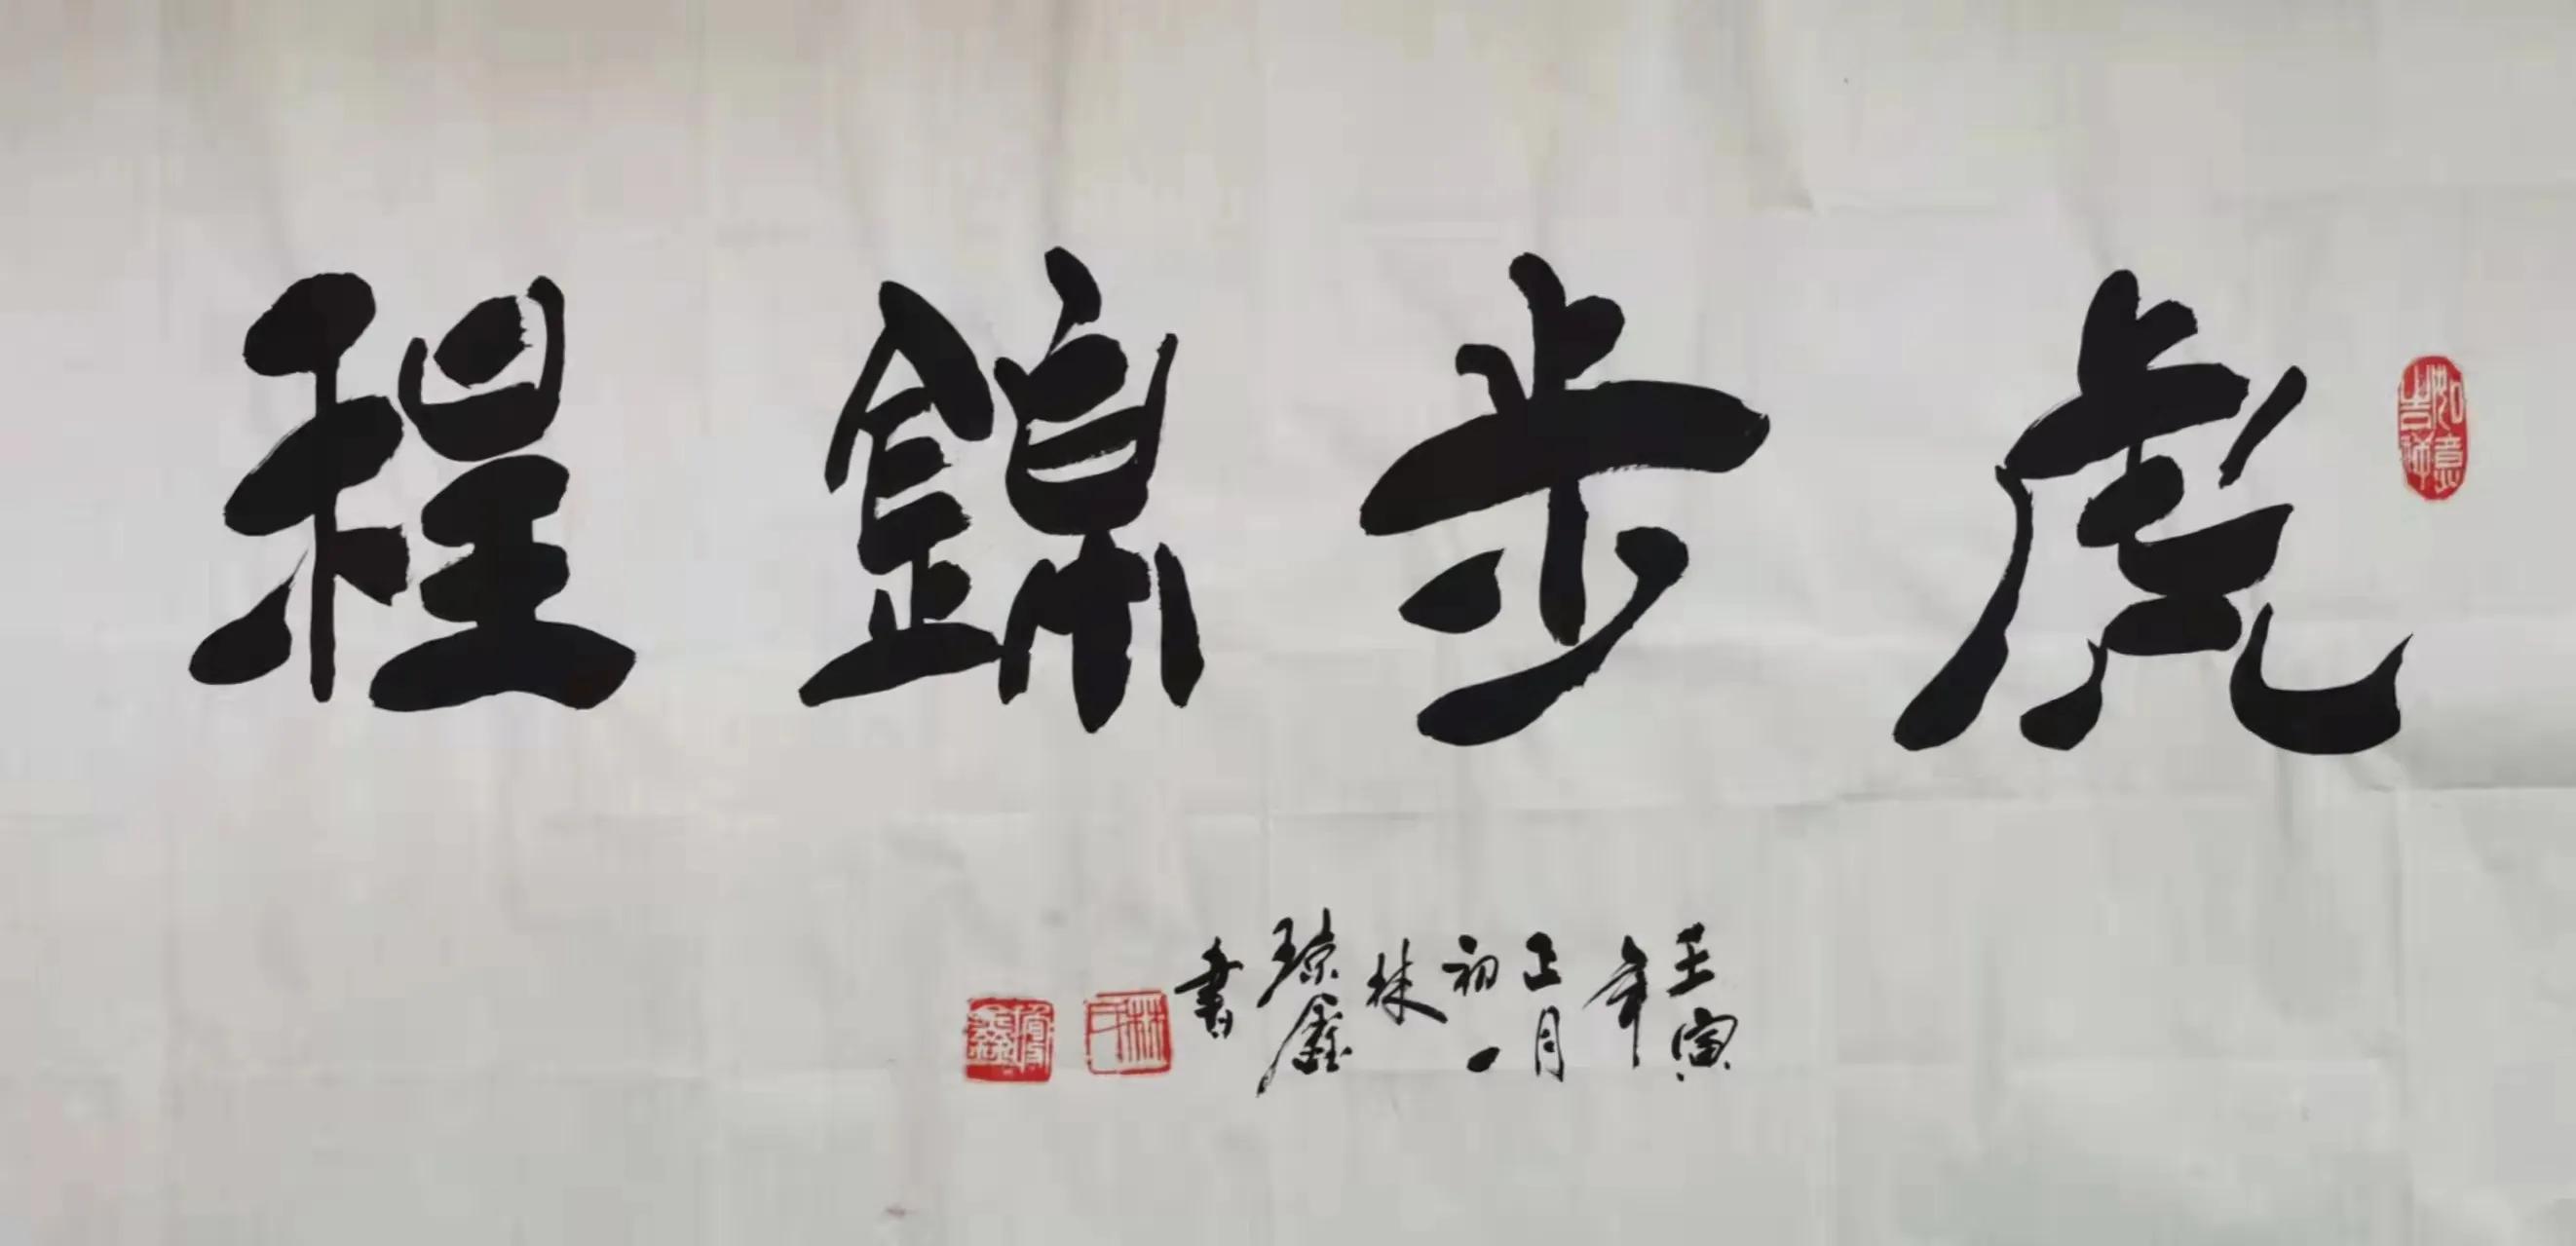 虎步錦程
壬寅年正月初一林琼鑫書
如意吉祥
林氏